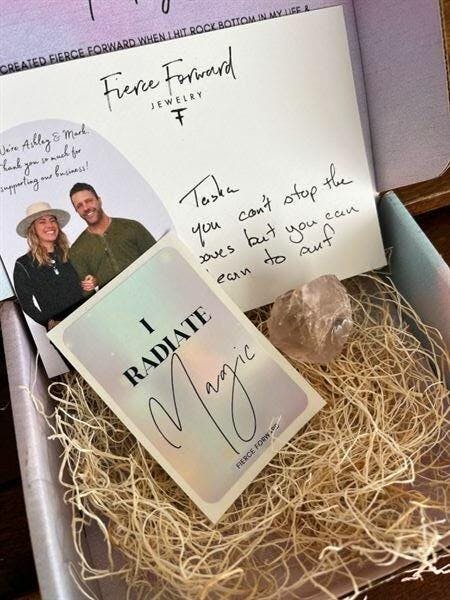 CREATED FIERCE FORWARD WHEN I HIT ROCK BOTTOM IN MY LIFE &
Fierce Forward
JEWELRY
We're Ashley & Mark.
Thank you so much for
supporting our business!
Teisha
you can't stop the
waves but you can
learn to surf
I
RADIATE
Magic
FIERCE FORWARD